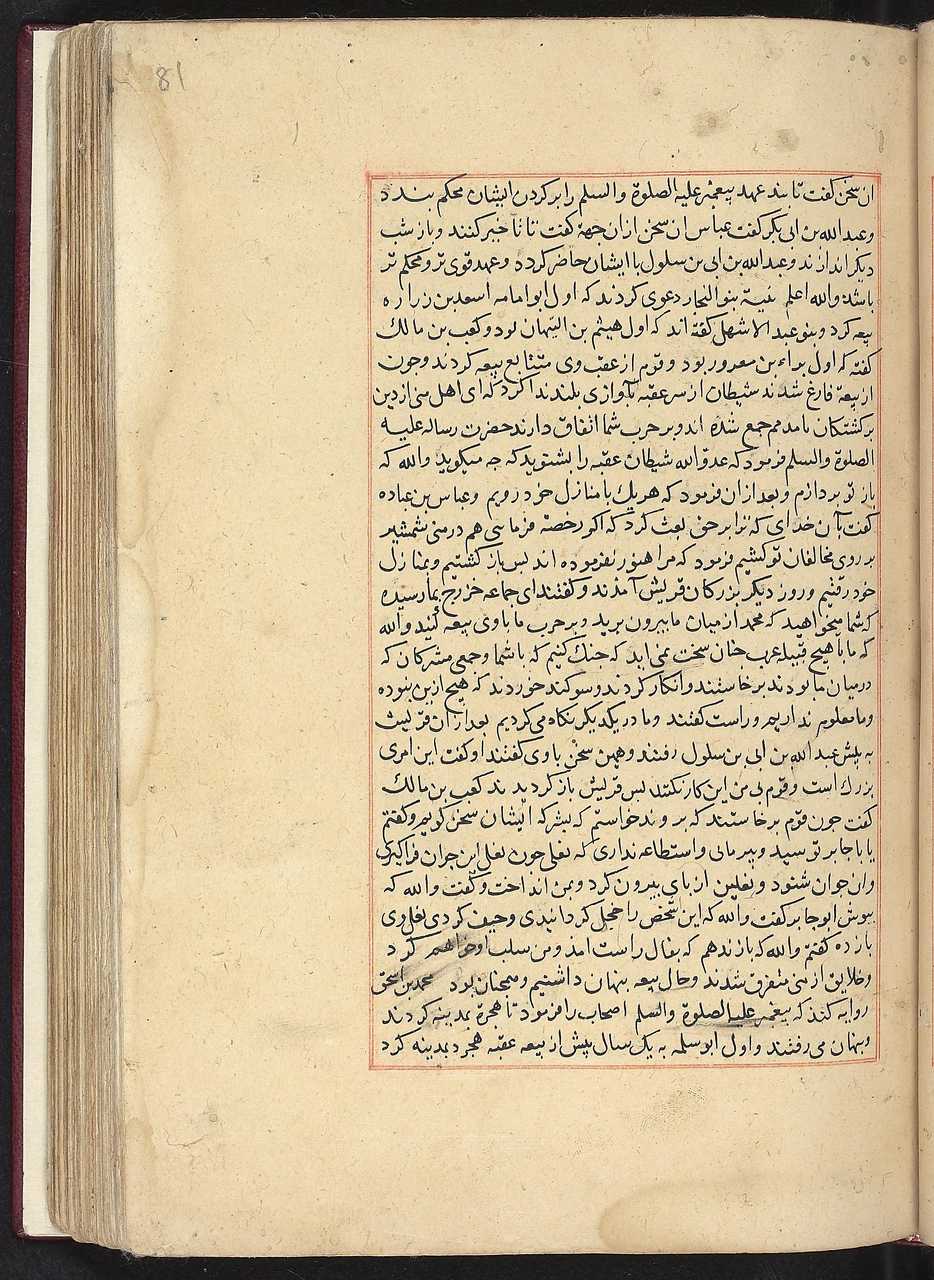 81
ان سخن كفت تا بند عهد پیغمبر علیه الصلوة والسلم را بر كردن ایشان محكم بندد
وعبدالله بن ابی بكر كفت عباس ان سخن ازان جهة كفت تا تاخیر كنند وبازشب
دیكر اندازند وعبدالله بن ابی بن سلول با ایشان حاضر كردد وعهد قوی تر ومحكم تر
باشد والله اعلم بنو النجار دعوی كردند كه اول ابوامامه اسعد بن زراره
بیعه كرد وبنو عبدالاشهل كفته اند كه اول هیثم بن التیهان بود وكعب بن مالك
كفته كه اول براء بن معرور بود وقوم از عقب وی متتابع بیعه كردند وجون
از بیعة فارغ شدند شیطان از سر عقبه بآوازی بلند ندا كرد كه ای اهل منی از دین
بركشتكان با مذمم جمع شده اند وبر حرب شما اتفاق دارند حضرت رساله علیه
الصلوة والسلم فرمود كه عدو الله شیطان عقبه را بشنوید كه جه میكوید والله كه
باز تو پردازم وبعد ازان فرمود كه هریك بامنازل خود رویم وعباس بن عباده
كفت بآن خدای كه ترا بر حق بعث كرد كه اكر رخصة فرمایی هم در منی شمشیر
بر روی مخالفان تو كشیم فرمود كه مرا هنوز نفرموده اند پس باز كشتیم وبمنازل
خود رفتیم وروز دیكر بزركان قریش آمدند وكفتند ای جماعه خزرج بما رسیده
كه شما میخواهید كه محمد از میان ما بیرون برید وبر حرب ما باوی بیعه كنید والله
كه ما با هیچ قبیله عرب جنان سخت نمی اید كه جنك كنیم كه با شما وجمعی مشركان كه
درمیان ما بودند برخاستند وانكار كردند وسوكند خوردند كه هیچ ازین نبوده
وما معلوم نداریم وراست كفتند وما در یكدیكر نكاه می كردیم بعد ازان قریش
به پیش عبدالله بن ابی بن سلول رفتند وهمین سخن باوی كفتند او كفت این امری
بزرك است وقوم بی من این كار نكنند پس قریش باز كردیدند كعب بن مالك
كفت جون قوم برخاستند كه بروند خواستم كه ایشان سخن كویم وكفتم
یا باجابر تو سید وپیر مائی واستطاعه نداری كه نعلی جون نعل این جوان فراكیری
وان جوان شنود ونعلین از پای بیرون كرد وبمن انداخت وكفت والله كه
بپوش ابوجابر كفت والله كه این شخص را خجل كردانیدی وحیف كردی نعل وی
باز ده كفتم والله كه باز ندهم كه بفال راست امد ومن سلب او خواهم كرد
وخلایق از منی متفرق شدند وحال بیعه پنهان داشتیم وهمچنان بود محمد بن اسحق
روایه كند كه پیغمبر علیه الصلوة والسلم اصحاب را فرمود تا هجرة بمدینه كردند
وپنهان می رفتند واول ابوسلمه به یك سال پیش از بیعه عقبه هجرة بمدینه كرد